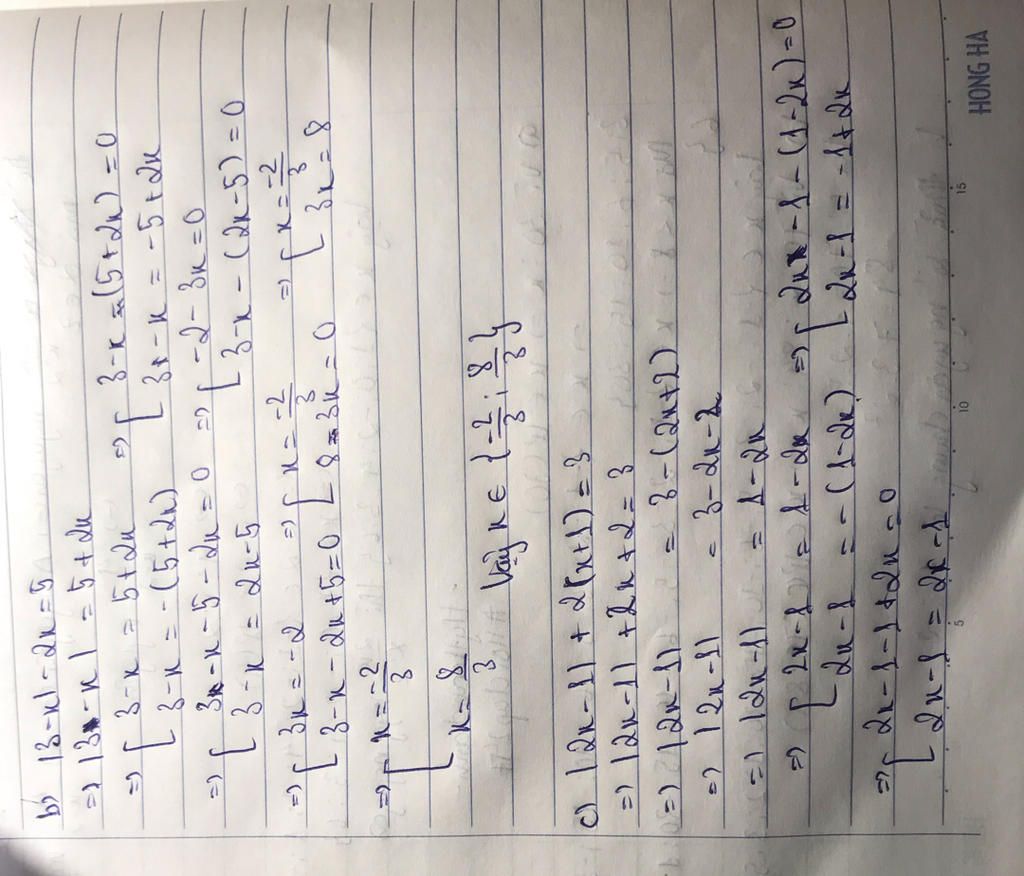 b) |3-x|-2x=5
=> |3-x| = 5+2x
=> [ 3-x = 5+2x => [ 3-x-(5+2x)=0
3-x = -(5+2x) 3-x = -5+2x
=> [ 3-x-5-2x=0 => [ -2-3x=0
3-x = 2x-5 3-x-(2x-5)=0
=> [ 3x=-2 => [ x=-2/3 => [ x=-2/3
3-x-2x+5=0 8-3x=0 3x=8
=> [ x=-2/3
x=8/3 Vậy x ∈ {-2/3; 8/3}
c) |2x-1|+2(x+1)=3
=> |2x-1|+2x+2=3
=> |2x-1| = 3-(2x+2)
=> |2x-1| = 3-2x-2
=> |2x-1| = 1-2x
=> [ 2x-1 = 1-2x => [ 2x-1-(1-2x)=0
2x-1 = -(1-2x) 2x-1 = -1+2x
=> [ 2x-1-1+2x=0
2x-1 = 2x-1
5 10 15
HONG HA